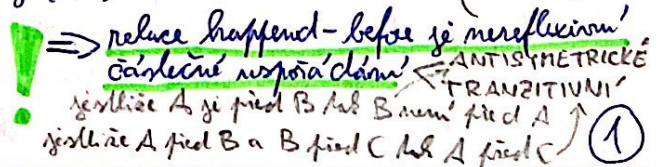 ! ⇒ relace happend-before je nereflexivní
částečné uspořádání ANTISYMETRICKÉ
TRANZITIVNÍ
jestliže A je před B tak B není před A
jestliže A před B a B před C tak A před C
1